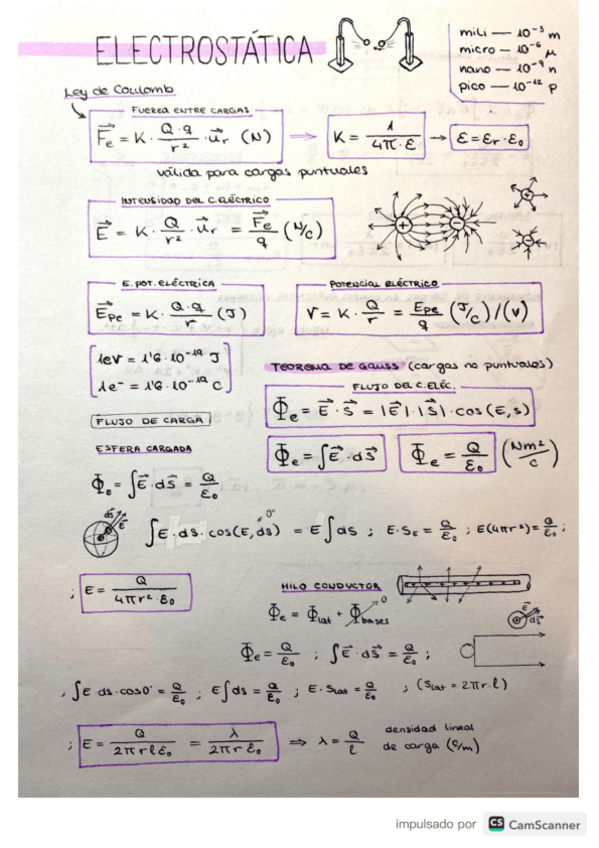 ELECTROSTÁTICA
mili — 10⁻³ m
micro — 10⁻⁶ μ
nano — 10⁻⁹ n
pico — 10⁻¹² p
Ley de Coulomb
FUERZA ENTRE CARGAS
F⃗e = K · Q·q/r² · u⃗r (N) ⇒ K = 1/4π·ε → ε = εr · ε₀
válida para cargas puntuales
INTENSIDAD DEL C.ELÉCTRICO
E⃗ = K · Q/r² · u⃗r = F⃗e/q (N/C)
+ −
+
−
E. POT. ELÉCTRICA
E⃗pe = K · Q·q/r (J)
POTENCIAL ELÉCTRICO
V = K · Q/r = Epe/q (J/C)/(V)
1eV = 1'6 · 10⁻¹⁹ J
1e⁻ = 1'6 · 10⁻¹⁹ C
TEOREMA DE GAUSS (cargas no puntuales)
FLUJO DEL C.ELÉC.
Φe = E⃗ · S⃗ = |E⃗| · |S⃗| · cos(E,S)
Φe = ∫E⃗ · dS⃗
Φe = Q/ε₀ (Nm²/C)
FLUJO DE CARGA
ESFERA CARGADA
Φe = ∫E⃗ · dS⃗ = Q/ε₀
dS⃗ E⃗
∫E · dS · cos(E, dS) 0° = E∫dS ; E · SE = Q/ε₀ ; E(4πr²) = Q/ε₀ ;
; E = Q/4πr² · ε₀
HILO CONDUCTOR
Φe = Φlat + Φbases 0
E⃗ dS⃗
Φe = Q/ε₀ ; ∫E⃗ · dS⃗ = Q/ε₀ ;
; ∫E · dS · cos0° = Q/ε₀ ; E∫dS = Q/ε₀ ; E · Slat = Q/ε₀ ; (Slat = 2πr · l)
; E = Q/2πrlε₀ = λ/2πrε₀ ⇒ λ = Q/l densidad lineal
de carga (C/m)
impulsado por CS CamScanner